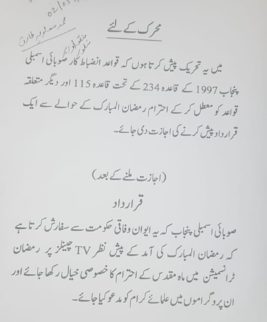 محرک کے لئے
میں یہ تحریک پیش کرتا ہوں کہ قواعد انضباط کار صوبائی اسمبلی
پنجاب 1997 کے قاعدہ 234 کے تحت قاعدہ 115 اور دیگر متعلقہ
قواعد کو معطل کر کے احترام رمضان المبارک کے حوالے سے ایک
قرارداد پیش کرنے کی اجازت دی جائے۔
(اجازت ملنے کے بعد)
قرارداد
صوبائی اسمبلی پنجاب کہ یہ ایوان وفاقی حکومت سے سفارش کرتا ہے
کہ رمضان المبارک کی آمد کے پیش نظر TV چینلز پر رمضان
ٹرانسمیشن میں ماہ مقدس کے احترام کا خصوصی خیال رکھا جائے اور
ان پروگراموں میں علمائے کرام کو مدعو کیا جائے۔